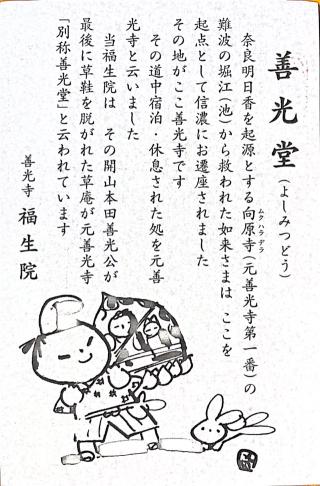 善光堂(よしみつどう)
奈良明日香を起源とする向原寺(元善光寺第一番)の
ムクハラデラ
難波の堀江(池)から救われた如来さまは ここを
起点として信濃にお遷座されました
その地がここ善光寺です
その道中宿泊・休息された処を元善
光寺と云いました
当福生院は その開山本田善光公が
最後に草鞋を脱がれた草庵が元善光寺
「別称善光堂」と云われています
善光寺 福生院